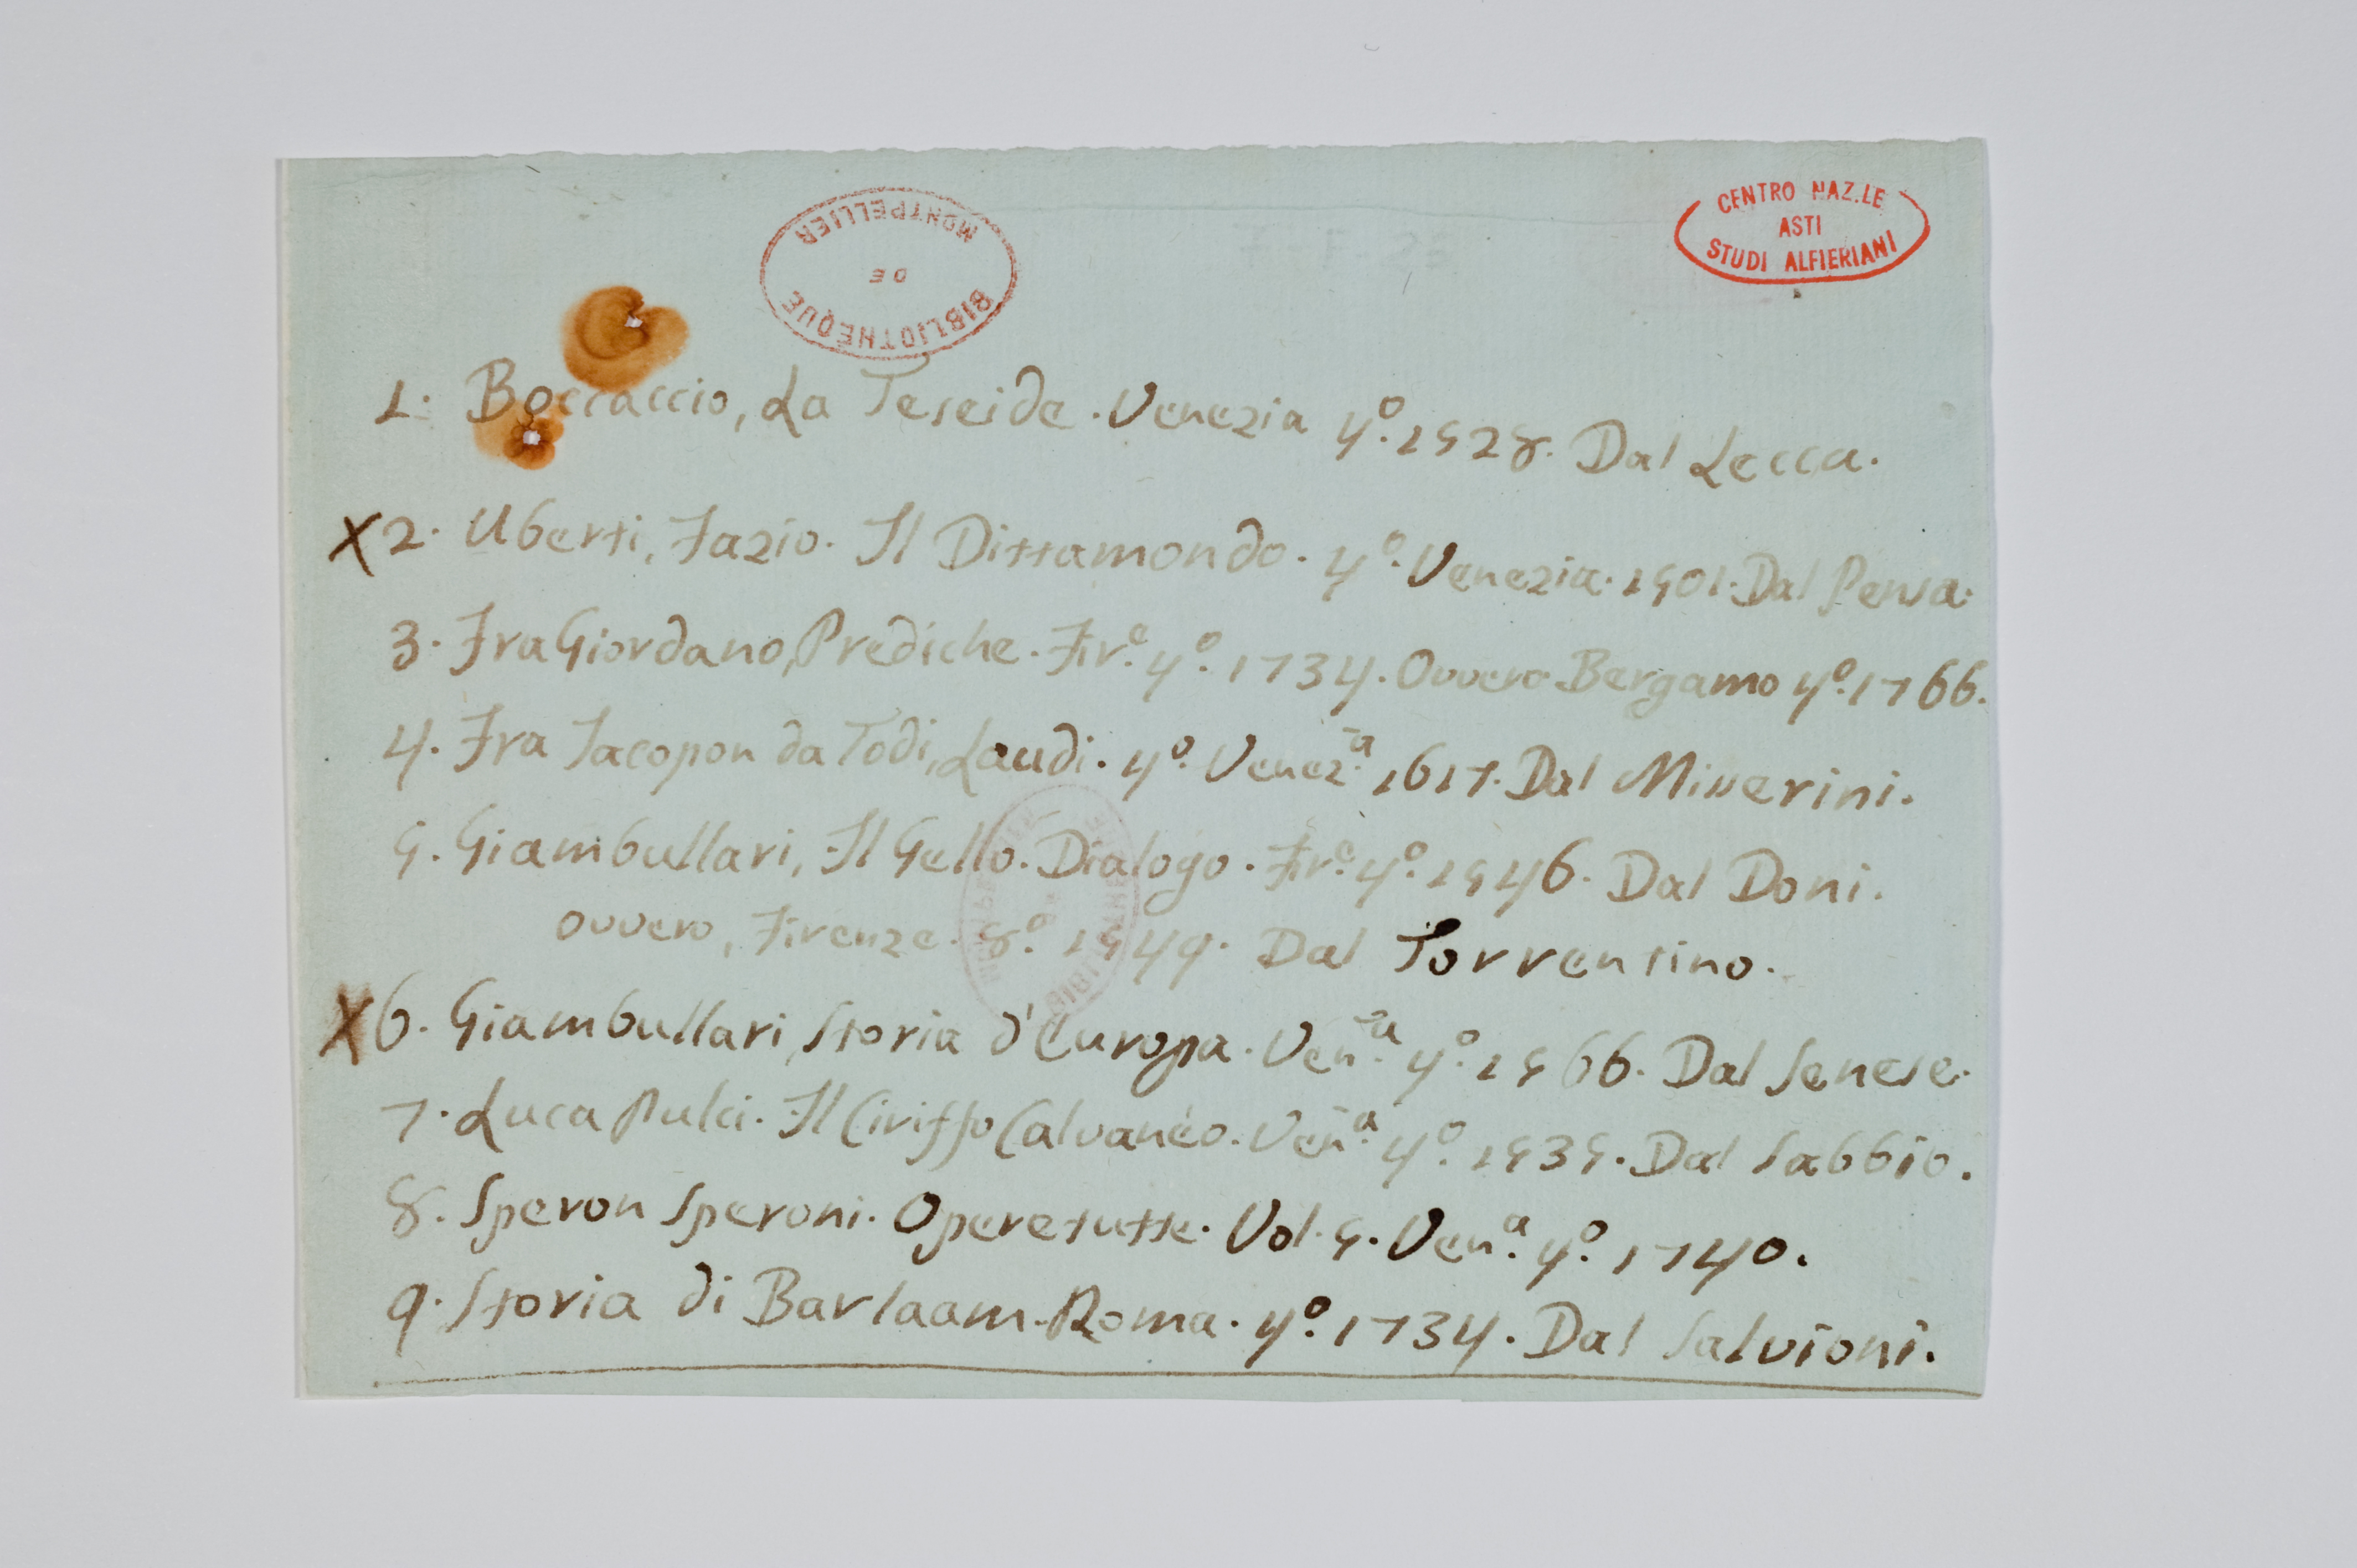 CENTRO NAZ.LE
ASTI
STUDI ALFIERIANI
BIBLIOTHEQUE
DE
MONTPELLIER
1. Boccaccio, La Teseide. Venezia 4º. 1528. Dal Lecca.
X 2. Uberti, Fazio. Il Dittamondo. 4º. Venezia. 1501. Dal Pensa.
3. Fra Giordano, Prediche. Fir.e 4º. 1734. Ovvero Bergamo 4º. 1766.
4. Fra Jacopon da Todi, Laudi. 4º. Venez.a 1617. Dal Misserini.
5. Giambullari, Il Gello. Dialogo. Fir.e 4º. 1546. Dal Doni.
ovvero, Firenze. 8º. 1549. Dal Torrentino.
X 6. Giambullari, Storia d'Europa. Ven.a 4º. 1566. Dal Senese.
7. Luca Pulci. Il Ciriffo Calvanéo. Ven.a 4º. 1535. Dal Sabbio.
8. Speron Speroni. Opere tutte. Vol. 5. Ven.a 4º. 1740.
9. Storia di Barlaam. Roma. 4º. 1734. Dal Salvioni.